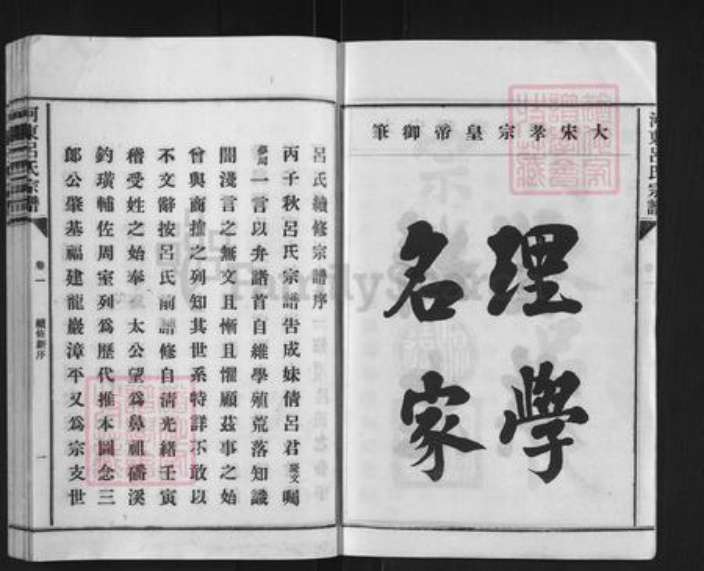 大宋孝宗皇帝御筆
理學
名家
呂氏續修宗譜序
丙子秋呂氏宗譜告成妹倩呂君慶文囑
夢周一言以弁譜首自維學殖荒落知識
闇淺言之無文且慚且懼顧茲事之始
曾與商搉之列知其世系特詳不敢以
不文辭按呂氏前譜修自清光緒壬寅
稽受姓之始奉 太公望為鼻祖磻溪
釣璜輔佐周室列為歷代推本圖念三
郎公肇基福建龍巖漳平又為宗支世
河東呂氏宗譜
卷一
續修新序
一
河東呂氏宗譜